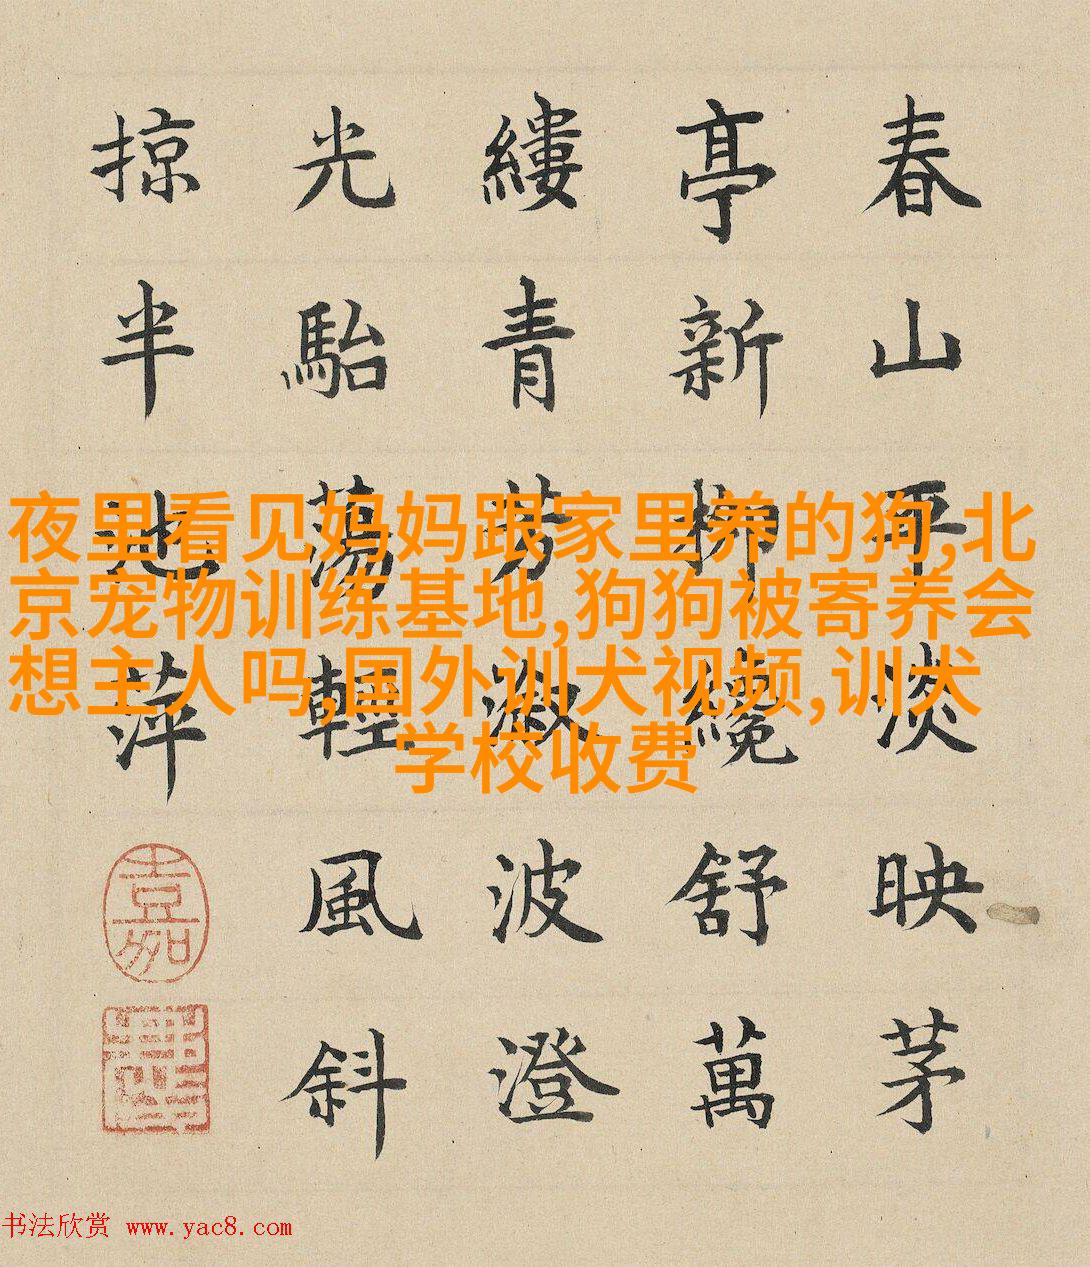 春山平淡映茅
亭新柳纜舒萬
縷青芳漵波澄
光駘蕩輕風斜
掠半池萍
嘉
夜里看见妈妈跟家里养的狗,北
京宠物训练基地,狗狗被寄养会
想主人吗,国外训犬视频,训犬
学校收费
书法欣赏 www.yac8.com